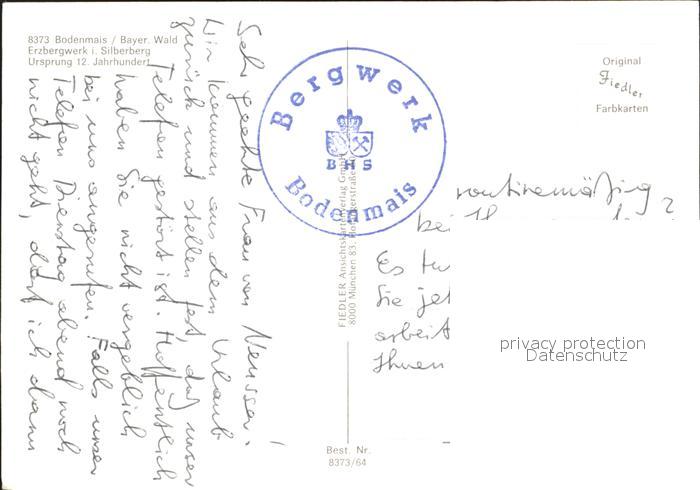 8373 Bodenmais / Bayer. Wald
Erzbergwerk i. Silberberg
Ursprung 12. Jahrhundert
Sehr geehrte Frau von Neusser!
Wir kommen aus dem Urlaub
zurück und stellen fest, daß unser
Telefon gestört ist. Hoffentlich
haben Sie nicht vergeblich
bei uns angerufen. Falls unser
Telefon Dienstag abend noch
nicht geht, darf ich dann
Bergwerk
BHS
Bodenmais
FIEDLER Ansichtskartenverlag GmbH
8000 München 83
Original
Fiedler
Farbkarten
routinemäßig
bei
Es
Sie
arbeit
Ihnen
privacy protection
Datenschutz
Best. Nr.
8373/64